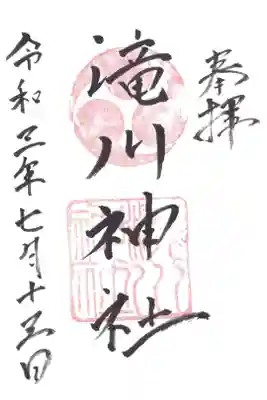 奉拝
滝川神社
令和三年七月十五日